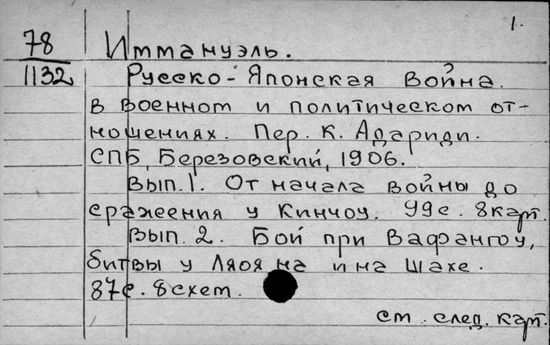 1.
78
1132
Иммануэль.
Русско-Японская война
в военном и политическом от-
ношениях. Пер. К. Адариди.
СПБ, Березовский, 1906.
Вып. 1. От начала войны до
сражения у Кинчоу. 99с. 8карт.
Вып. 2. Бой при Вафангоу,
битвы у Ляояна и на Шахе.
87с. 8схем.
см. след. карт.